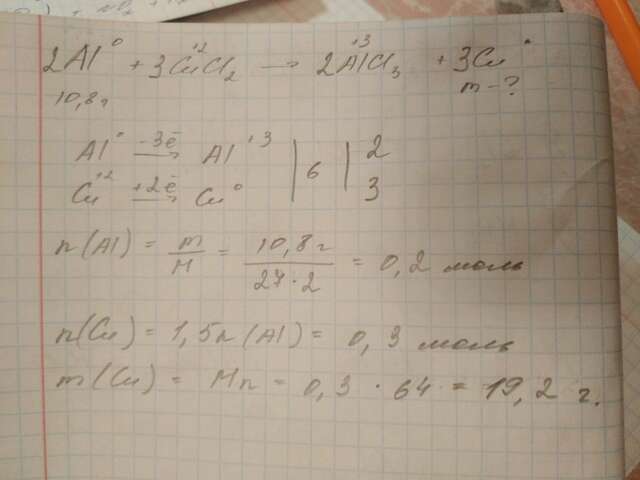 2Al⁰ + 3Cu⁺²Cl₂ → 2Al⁺³Cl₃ + 3Cu⁰
10,8г m-?
Al⁰ -3ē → Al⁺³ | 6 | 2
Cu⁺² +2ē → Cu⁰ | 3
n(Al) = m/M = 10,8г/27·2 = 0,2 моль
n(Cu) = 1,5n(Al) = 0,3 моль
m(Cu) = Mn = 0,3 · 64 = 19,2 г.